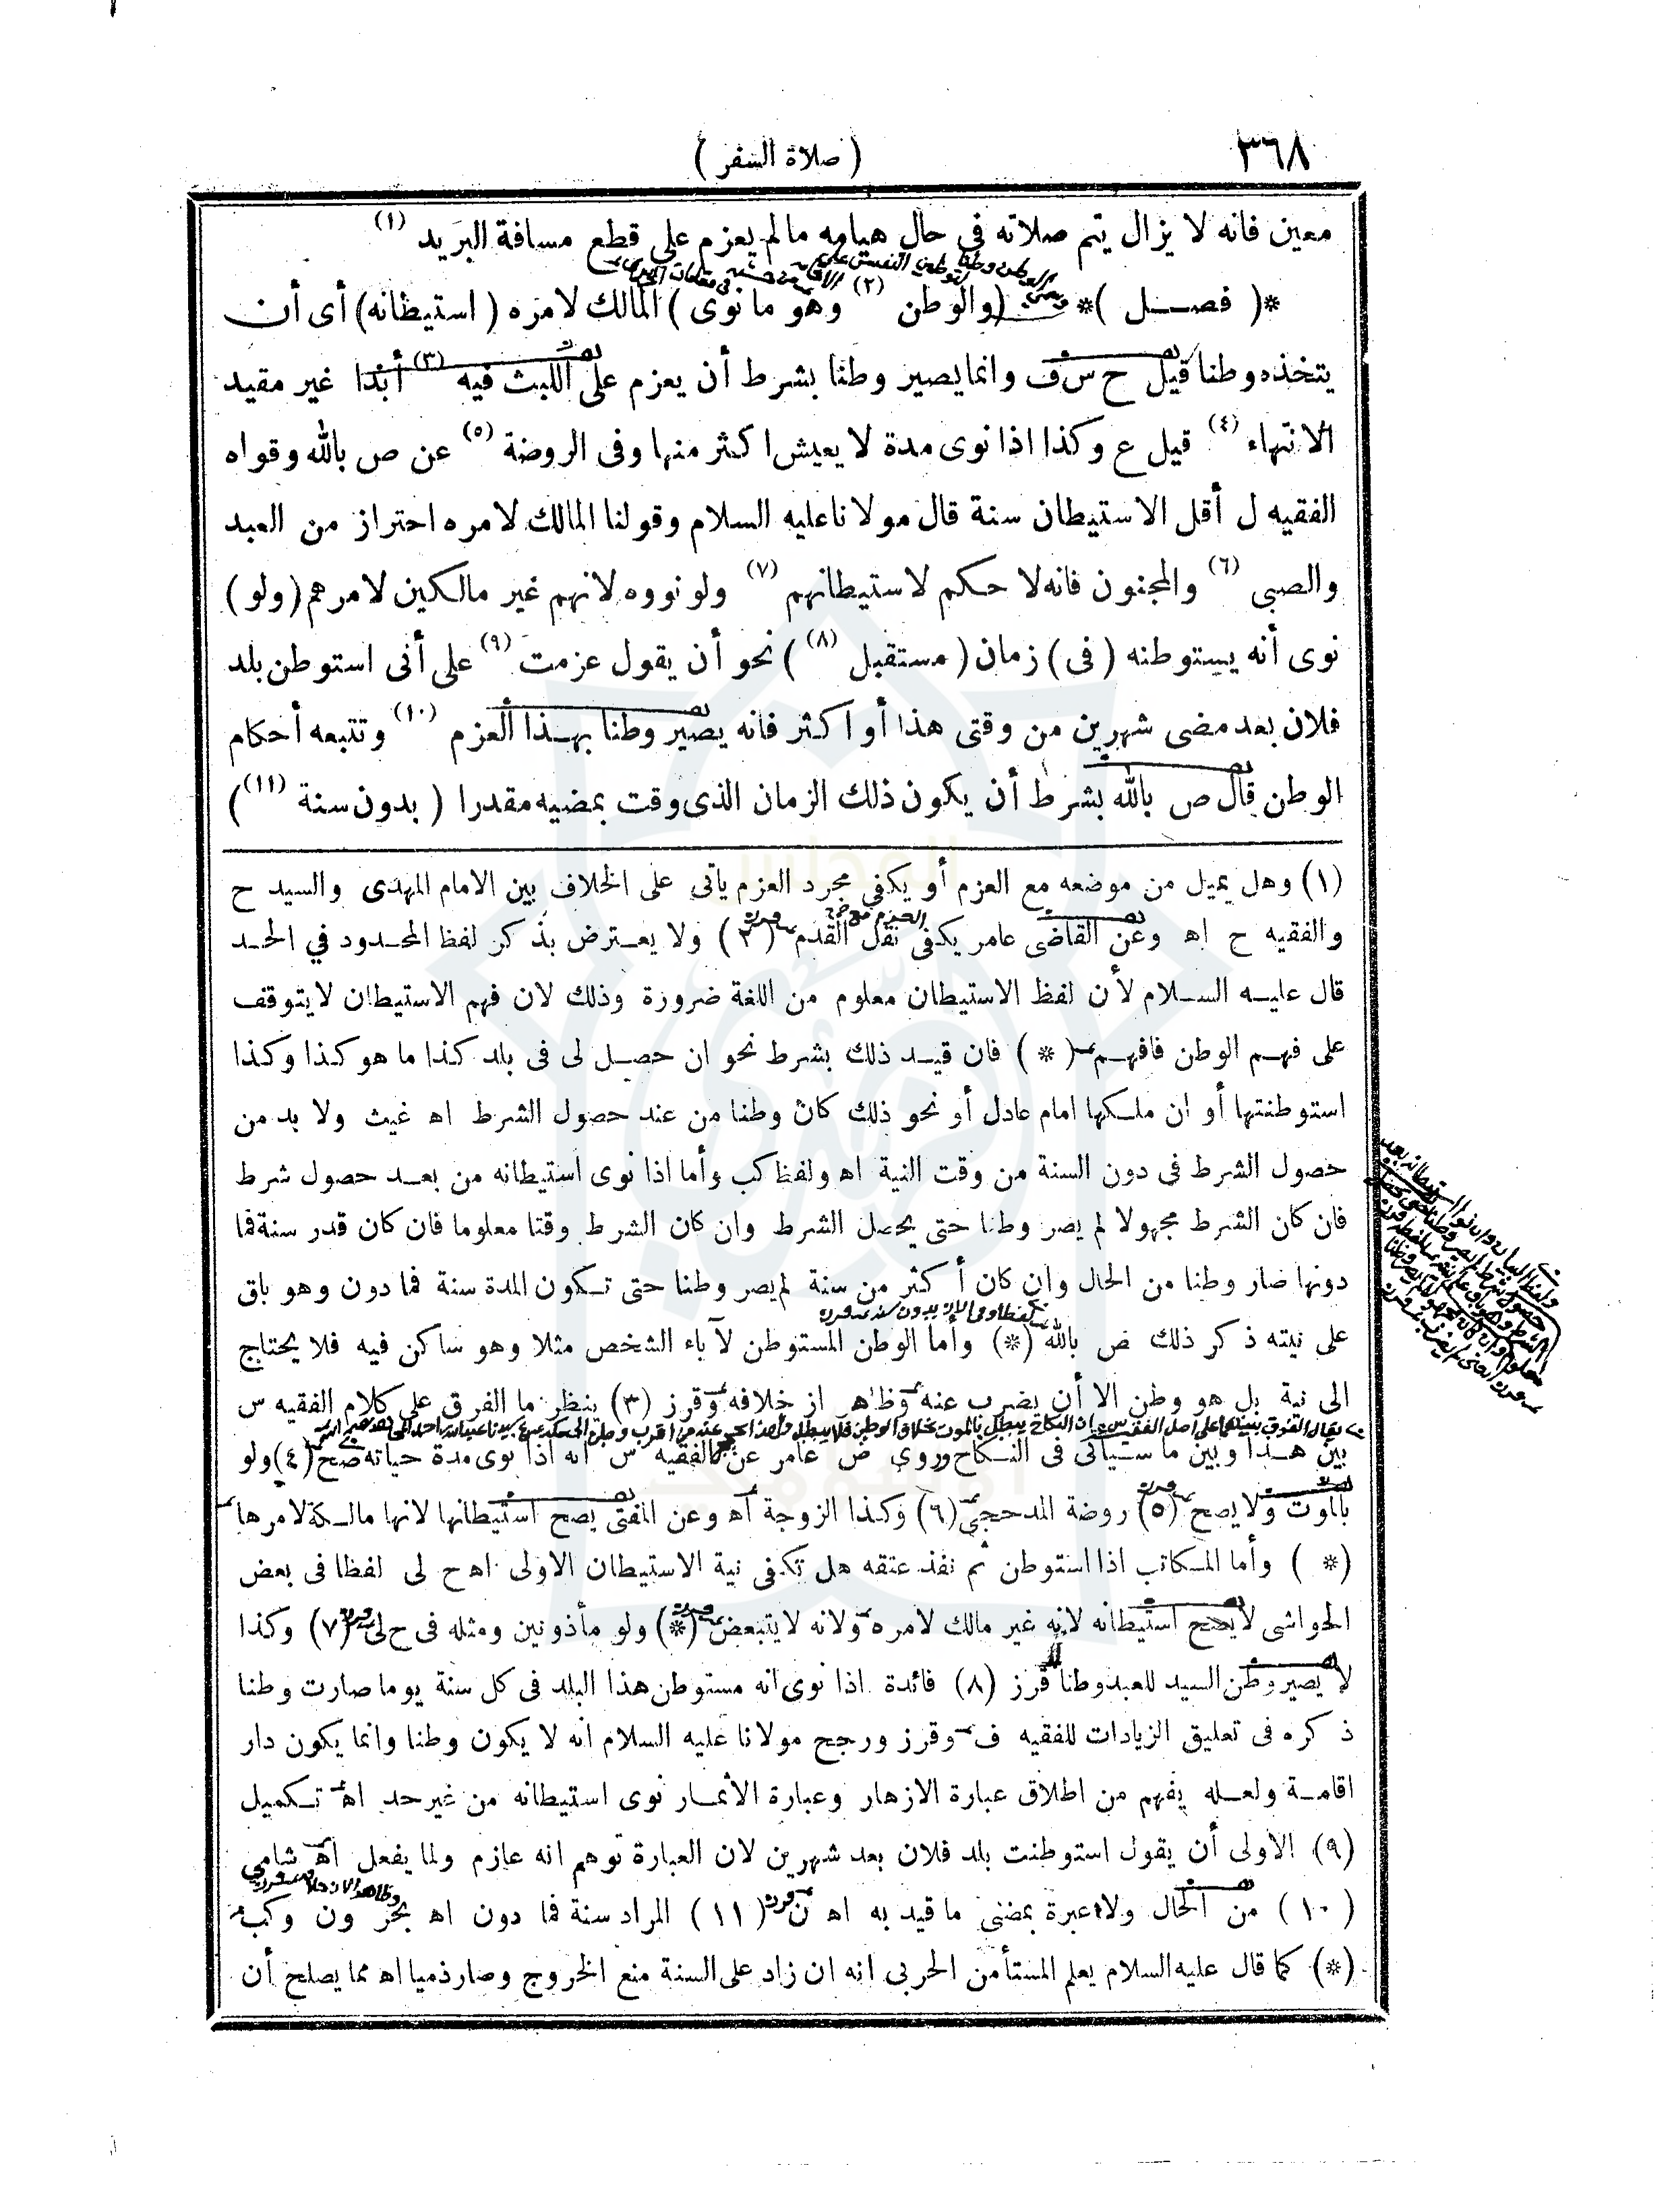 ٣٦٨
( صلاة السفر )
معين فانه لا يزال يتم صلاته فى حال هيامه مالم يعزم على قطع مسافة البريد (١)
*( فصـــل )* (والوطن (٢) وهو ما نوى) المالك لامره ( استيطانه) أى أن
يتخذه وطنا قيل ح س ف وانما يصير وطنا بشرط أن يعزم على اللبث فيه (٣) أبدا غير مقيد
الانتهاء (٤) قيل ع وكذا اذا نوى مدة لا يعيش اكثر منها وفى الروضة (٥) عن ص بالله وقواه
الفقيه ل أقل الاستيطان سنة قال مولانا عليه السلام وقولنا المالك لامره احتراز من العبد
والصبى (٦) والمجنون فانه لا حكم لاستيطانهم (٧) ولو نووه لانهم غير مالكين لامرهم (ولو)
نوى أنه يستوطنه (فى) زمان (مستقبل (٨) ) نحو أن يقول عزمت (٩) على أنى استوطن بلد
فلان بعد مضى شهرين من وقتى هذا أو اكثر فانه يصير وطنا بهـذا العزم (١٠) وتتبعه أحكام
الوطن قال ص بالله بشرط أن يكون ذلك الزمان الذى وقت بمضيه مقدرا ( بدون سنة (١١) )
(١) وهل يميل من موضعه مع العزم أو يكفي مجرد العزم يأتى على الخلاف بين الامام المهدى والسيد ح
والفقيه ح اه وعن القاضى عامر يكفى نقل القدم (٢) ولا يعـترض بذكر لفظ المحـدود في الحـد
قال عليـه السـلام لأن لفظ الاستيطان معلوم من اللغة ضرورة وذلك لان فهم الاستيطان لا يتوقف
على فهـم الوطن فافهـم (*) فان قيـد ذلك بشرط نحو ان حصـل لى فى بلد كذا ما هو كذا وكذا
استوطنتها أو ان ملـكها امام عادل أو نحو ذلك كان وطنا من عند حصول الشرط اه غيث ولا بد من
حصول الشرط فى دون السنة من وقت النية اه ولفظ كب وأما اذا نوى استيطانه من بعـد حصول شرط
فان كان الشرط مجهولا لم يصر وطنا حتى يحصل الشرط وان كان الشرط وقتا معلوما فان كان قدر سنة فما
دونها صار وطنا من الحال وان كان أكثر من سنة لم يصر وطنا حتى تـكون المدة سنة فما دون وهو باق
على نيته ذكر ذلك ض بالله (*) وأما الوطن المستوطن لآباء الشخص مثلا وهو ساكن فيه فلا يحتاج
الى نية بل هو وطن الا أن يضرب عنه وظاهر از خلافه وقرز (٣) ينظر ما الفرق على كلام الفقيه س
بين هـذا وبين ما سـيأتى فى النـكاح وروى ض عامر عن الفقيه س انه اذا نوى مدة حياته صح (٤) ولو
بالموت ولا يصح (٥) روضة المدحجى (٦) وكذا الزوجة اه وعن المفتى يصح استيطانها لانها مالـكة لامرها
(*) وأما المـكاتب اذا استوطن ثم نفذ عتقه هل تكفى نية الاستيطان الاولى اه ح لى لفظا فى بعض
الحواشى لا يصح استيطانه لانه غير مالك لامره ولانه لا يتبعض (*) ولو مأذونين ومثله فى ح لى (٧) وكذا
لا يصير وطن السيد للعبد وطنا قرز (٨) فائدة اذا نوى انه مستوطن هذا البلد فى كل سنة يوما صارت وطنا
ذكره فى تعليق الزيادات للفقيه ف وقرز ورجح مولانا عليه السلام انه لا يكون وطنا وانما يكون دار
اقامـة ولعـله يفهم من اطلاق عبارة الازهار وعبارة الأثمـار نوى استيطانه من غير حد اه تـكميل
(٩) الاولى أن يقول استوطنت بلد فلان بعد شهرين لان العبارة توهم انه عازم ولما يفعل اه شامى
(١٠) من الحال ولا عبرة بمضى ما قيد به اه ن (١١) المراد سنة فما دون اه بحر ون وكب
(*) كما قال عليه السلام يعلم المستأمن الحربى انه ان زاد على السنة منع الخروج وصار ذميا اه مما يصلح أن